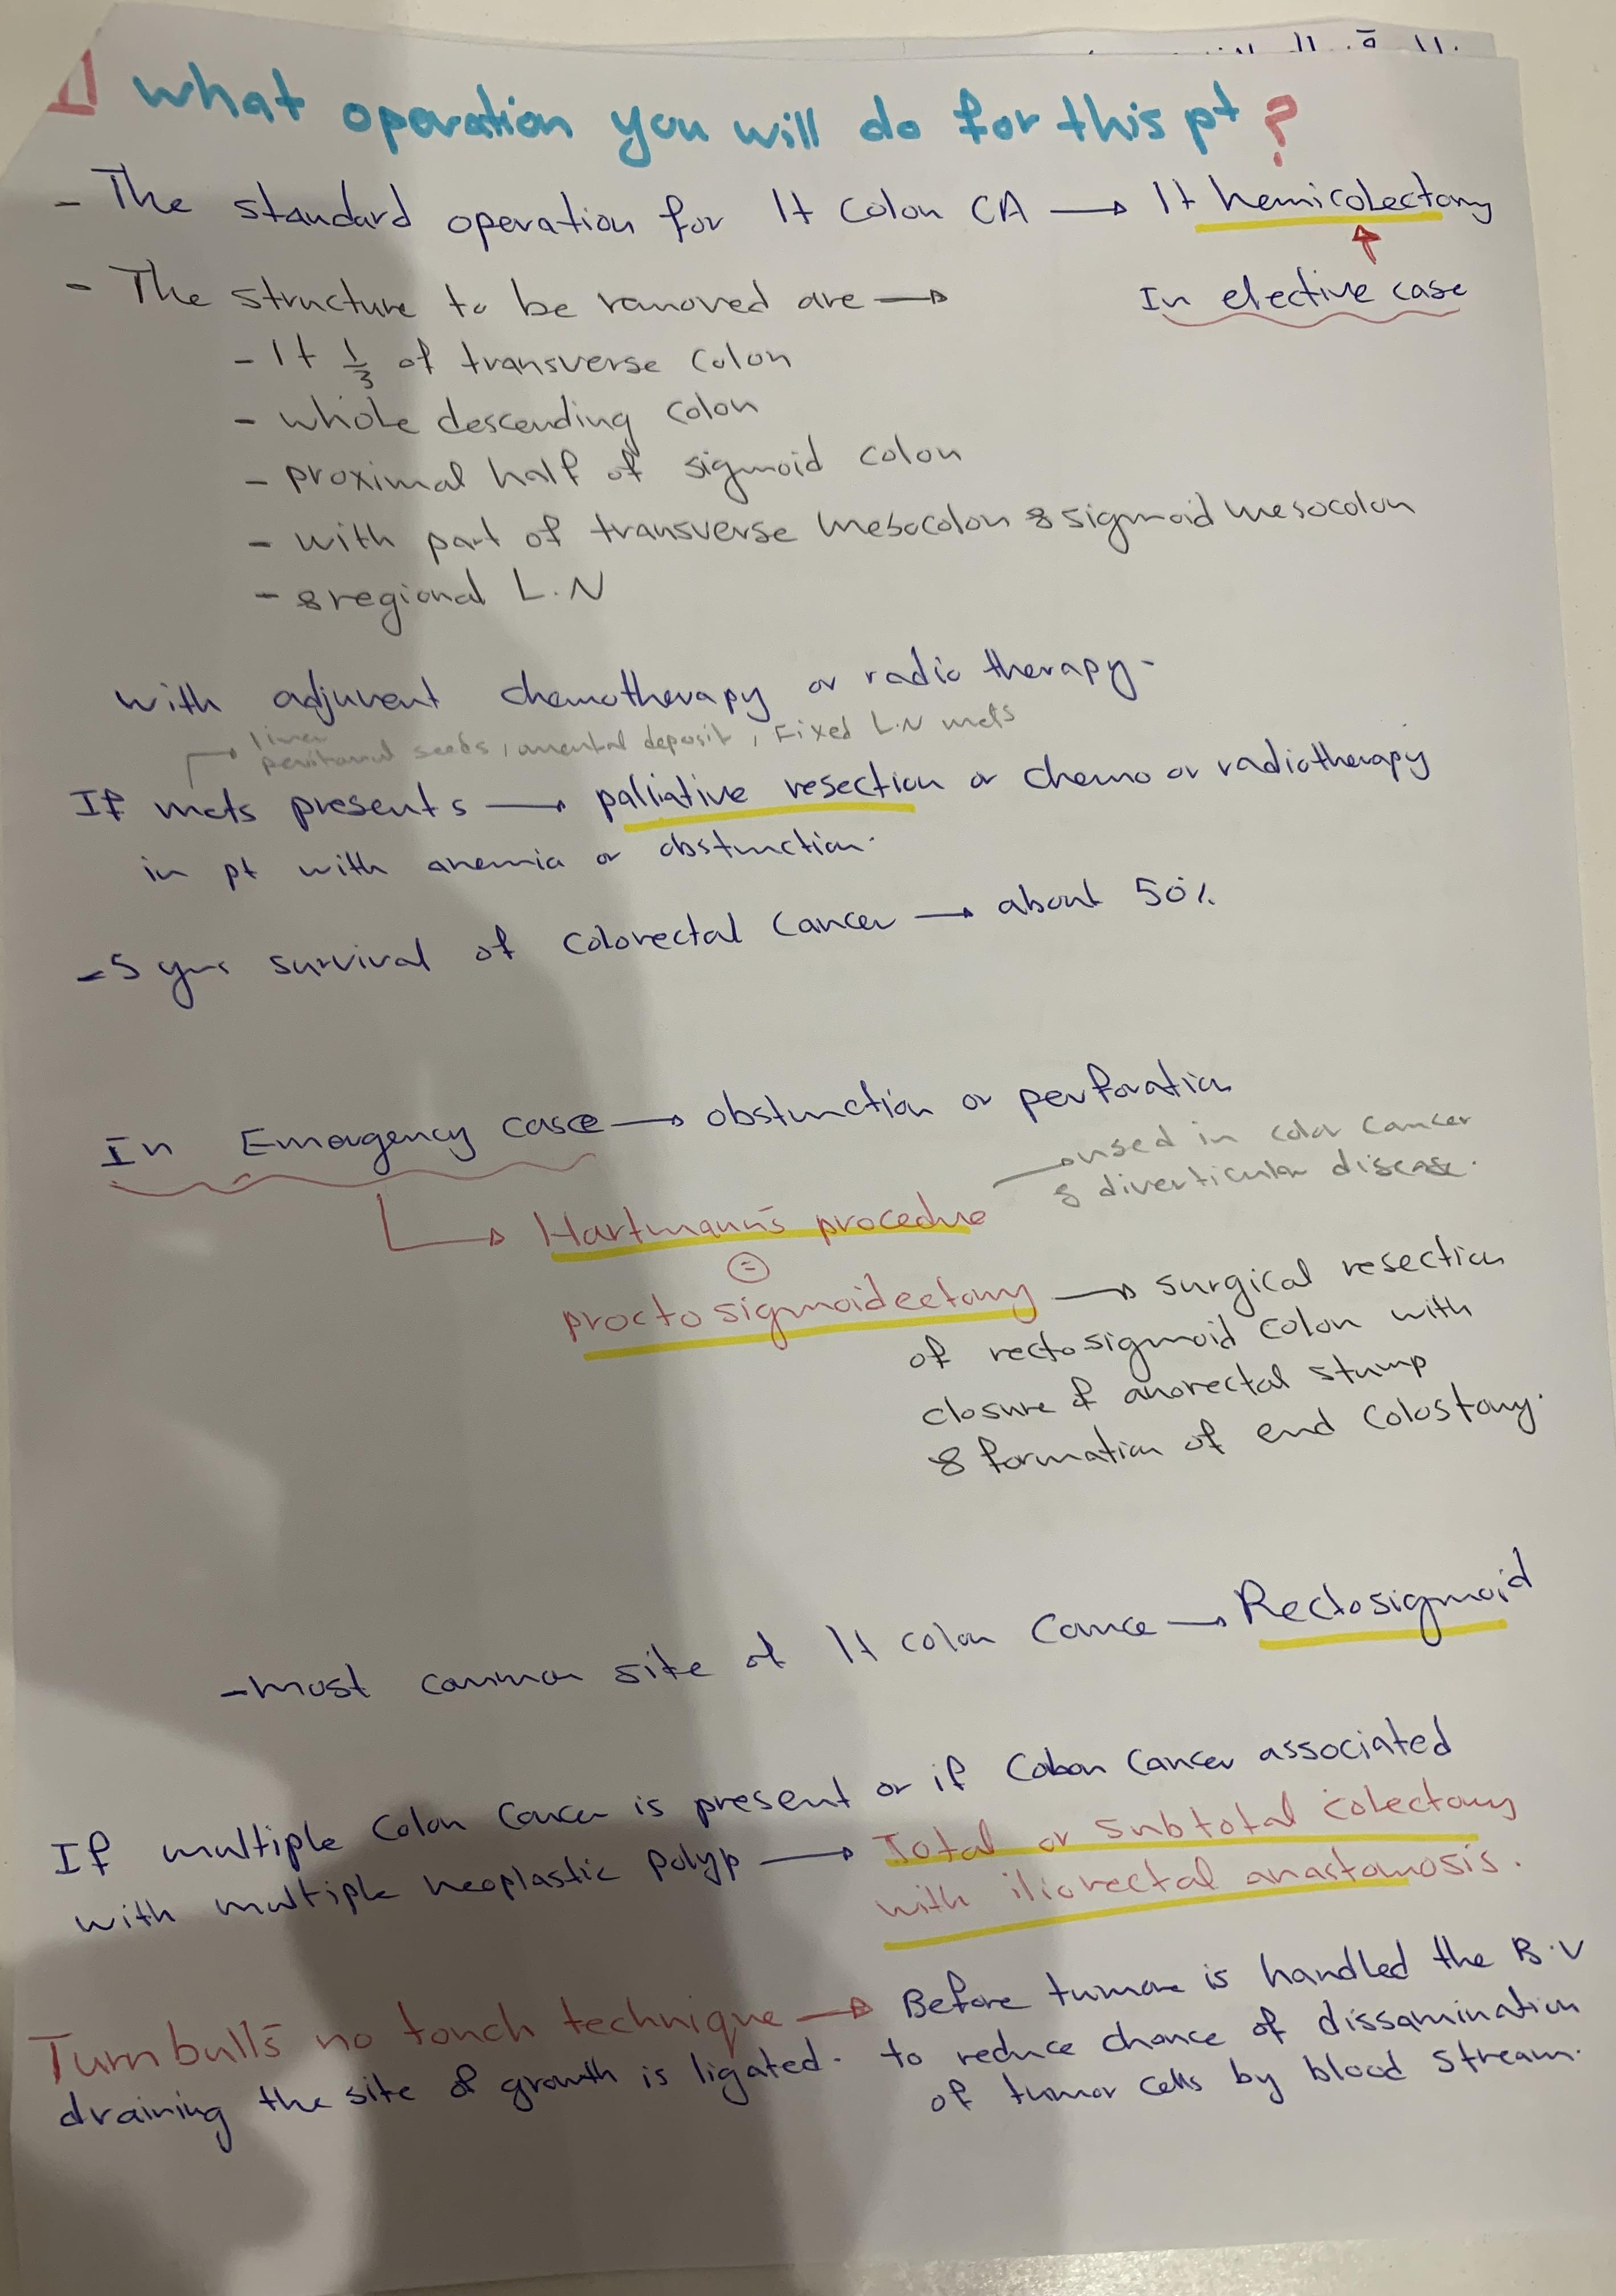 what operation you will do for this pt ?
- The standard operation for lt colon CA → lt hemicolectomy
In elective case
- The structure to be removed are →
- lt 1/3 of transverse colon
- whole descending colon
- proximal half of sigmoid colon
- with part of transverse mesocolon & sigmoid mesocolon
- & regional L.N
with adjuvent chemotherapy or radio therapy.
liver
peritoneal seeds, omental deposit, Fixed L.N mets
If mets presents → paliative resection or chemo or radiotherapy
in pt with anemia or obstruction.
- 5 yrs survival of colorectal cancer → about 50%
In Emergency case → obstruction or perforation
used in colon cancer
& diverticular disease.
Hartmann's procedure
=
proctosigmoidectomy → surgical resection
of rectosigmoid colon with
closure of anorectal stump
& formation of end colostomy.
- most common site of lt colon cance → Rectosigmoid
If multiple colon cancer is present or if colon cancer associated
with multiple neoplastic polyp → Total or subtotal colectomy
with iliorectal anastomosis.
Turnbull's no touch technique → Before tumore is handled the B.V
draining the site of growth is ligated. to reduce chance of dissamination
of tumor cells by blood stream.